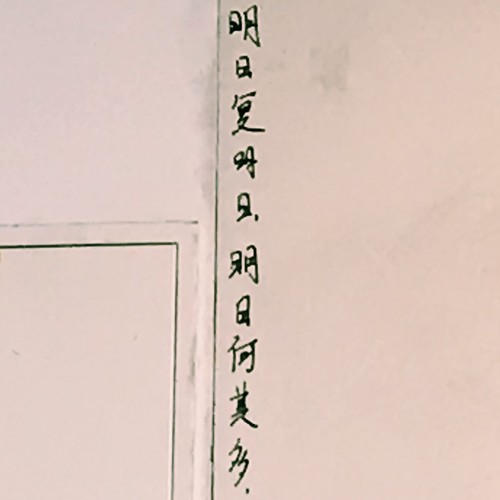 明日复明日,明日何其多.